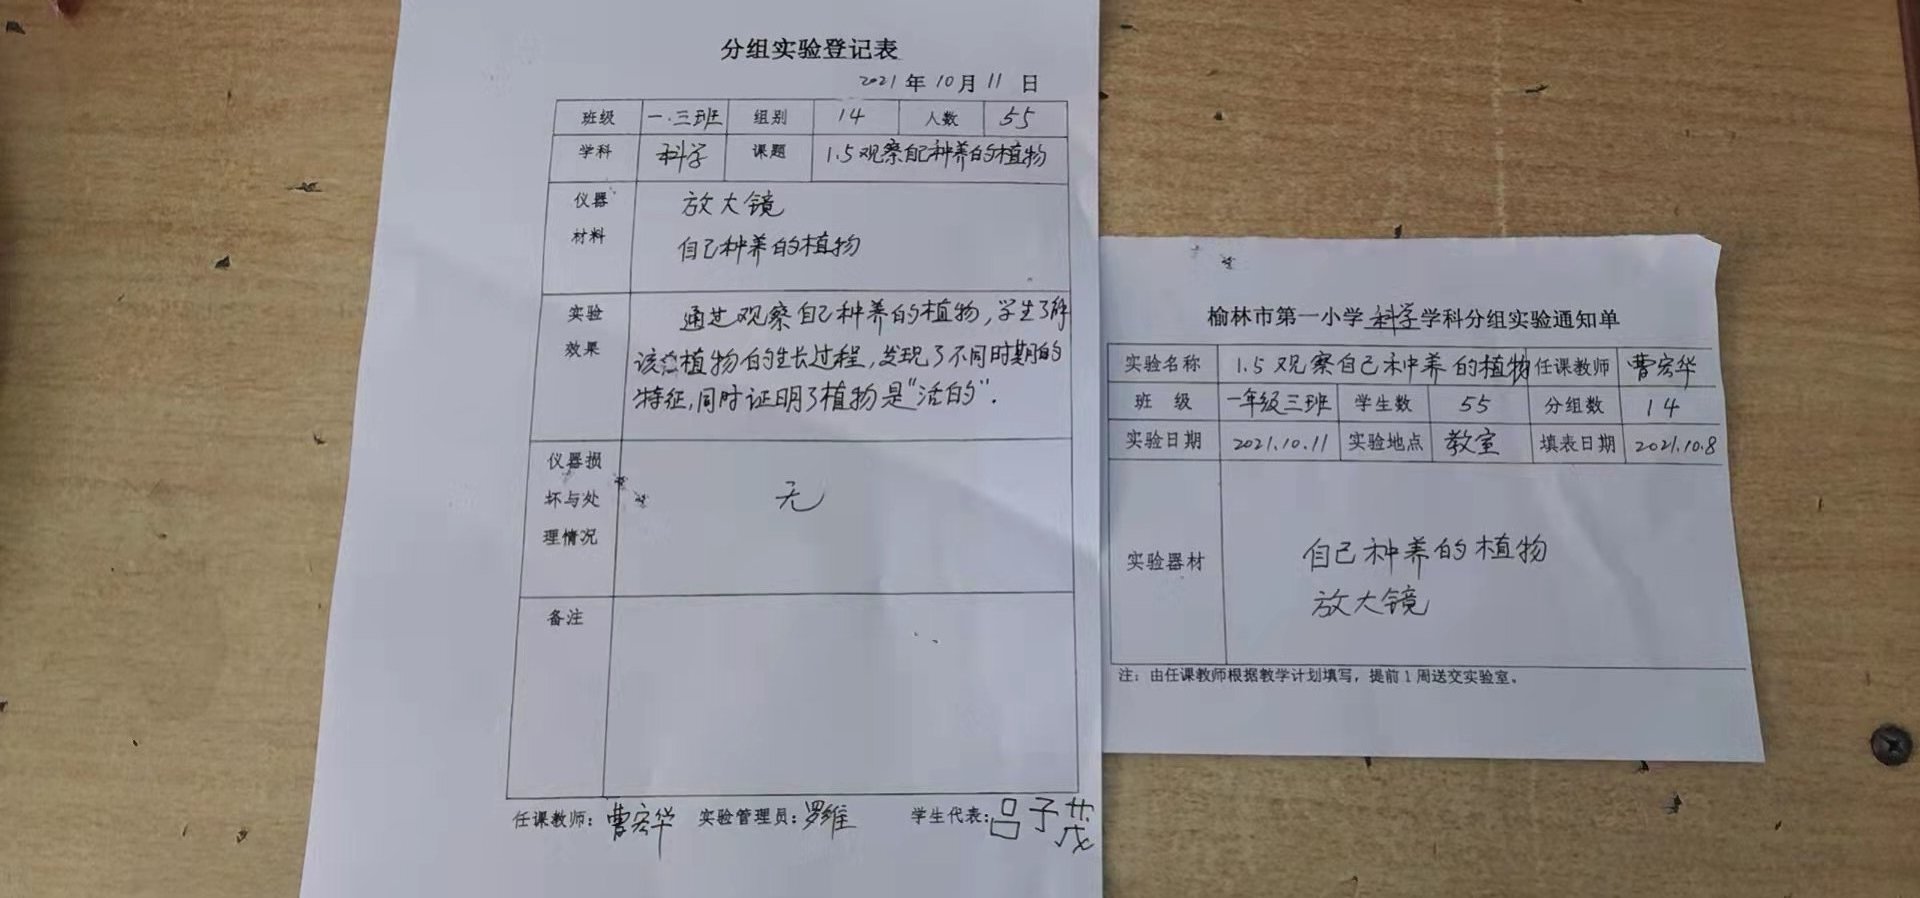 分组实验登记表
2021年10月11日
班级 一.三班 组别 14 人数 55
学科 科学 课题 1.5观察自己种养的植物
仪器 放大镜
材料 自己种养的植物
实验 通过观察自己种养的植物,学生了解
效果 该植物的生长过程,发现了不同时期的
特征,同时证明了植物是"活的".
仪器损
坏与处 无
理情况
备注
任课教师:曹宏华 实验管理员:罗维 学生代表:吕子茂
榆林市第一小学科学学科分组实验通知单
实验名称 1.5观察自己种养的植物 任课教师 曹宏华
班级 一年级三班 学生数 55 分组数 14
实验日期 2021.10.11 实验地点 教室 填表日期 2021.10.8
实验器材 自己种养的植物
放大镜
注:由任课教师根据教学计划填写,提前1周送交实验室。